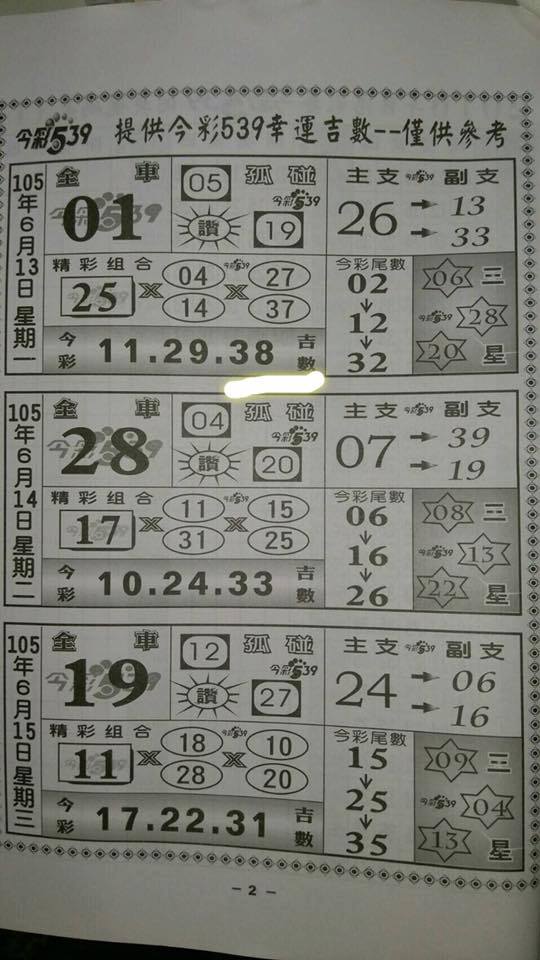 今彩539 提供今彩539幸運吉數--僅供參考
105年6月13日 星期一
全車 01 今彩539
孤碰 05 讚 19 今彩539
主支 今彩539 副支
26 → 13
→ 33
精彩組合 今彩539
25 X 04 14 X 27 37
今彩尾數
02
12
32
06 三
今彩539 28
20 星
今彩 11.29.38 吉數
105年6月14日 星期二
全車 28 今彩539
孤碰 04 讚 20 今彩539
主支 今彩539 副支
07 → 39
→ 19
精彩組合 今彩539
17 X 11 31 X 15 25
今彩尾數
06
16
26
08 三
今彩539 13
22 星
今彩 10.24.33 吉數
105年6月15日 星期三
全車 19 今彩539
孤碰 12 讚 27 今彩539
主支 今彩539 副支
24 → 06
→ 16
精彩組合 今彩539
11 X 18 28 X 10 20
今彩尾數
15
25
35
09 三
今彩539 04
13 星
今彩 17.22.31 吉數
- 2 -